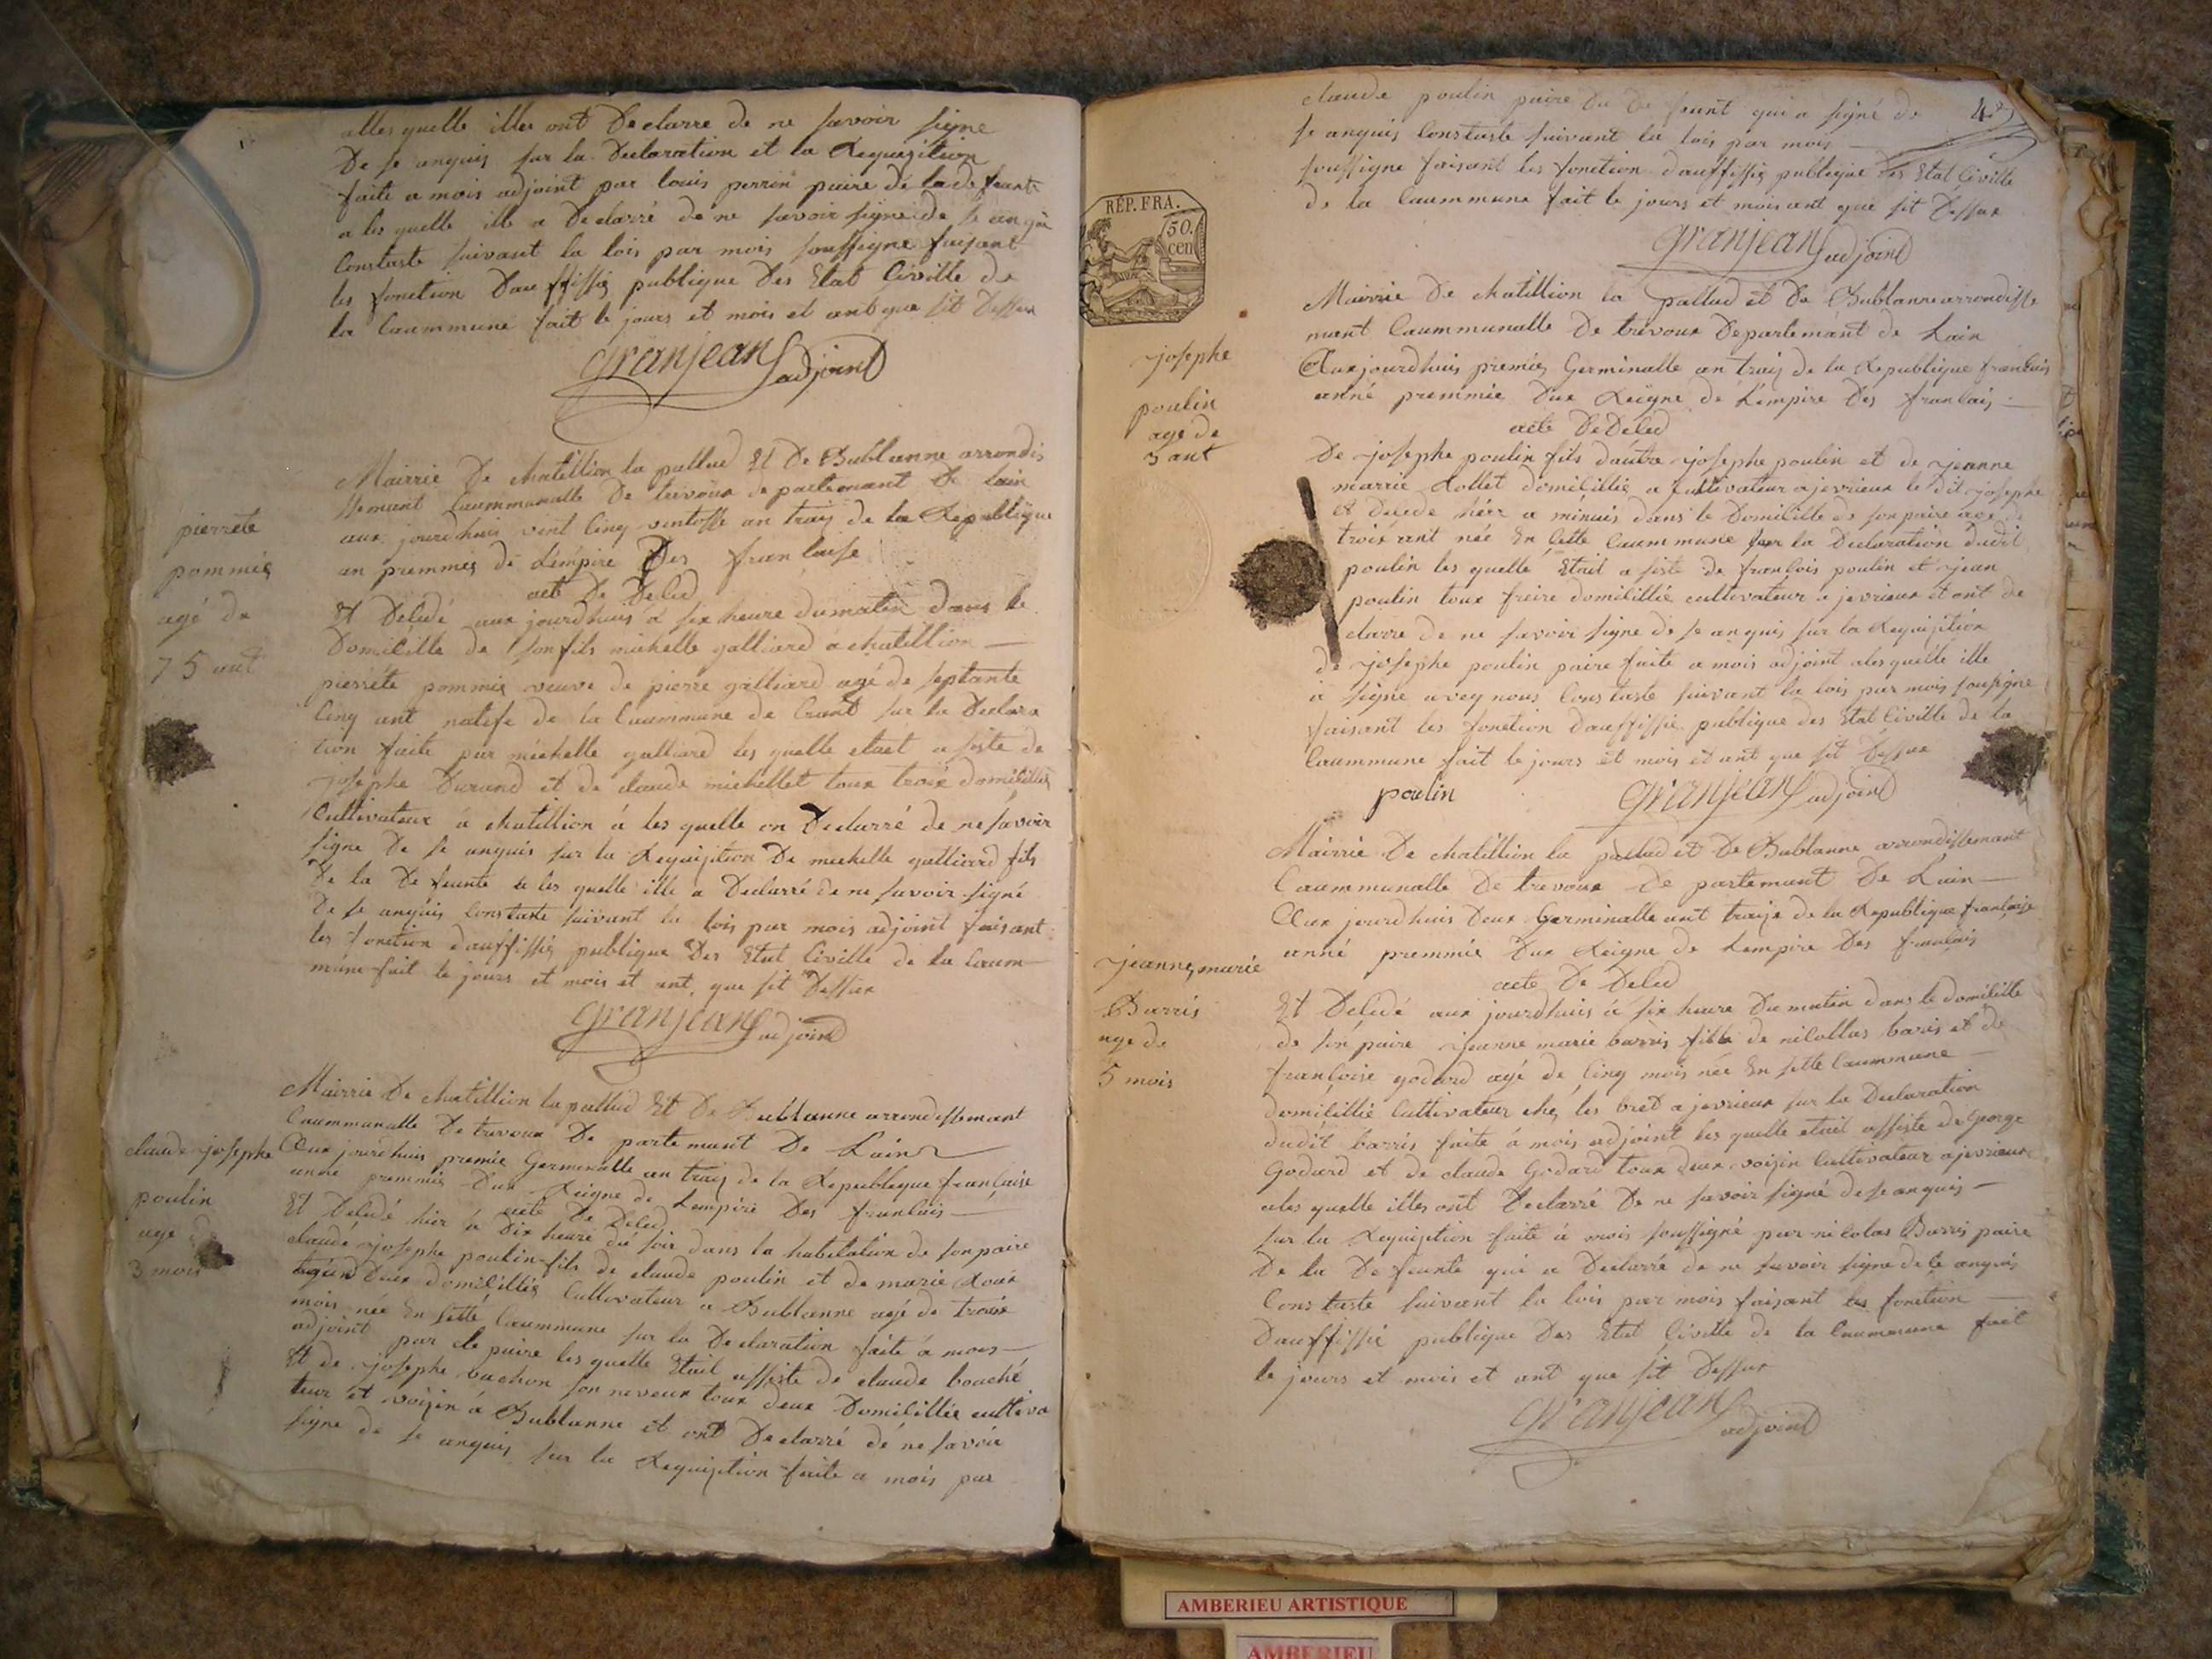 alles quelle illes ont Declarre de ne savoir signe
De se anquis sur la Declaration et la Requisition
faite a mois adjoint par louis perrin paire de la defeunte
a les quelle ille a Declarré de ne savoir signe de se anquis
Constaste suivant la lois par mois soussigne faisant
les fonction Dauffissiés publique Des Etat Civille de
la Caummune fait le jours et mois et ant que sit Dessux
granjean adjoint
pierrete
pommiés
agé de
75 ant
Mairrie De chatillion la pallud Et De Bublanne arrondis
ssemant Caummunalle De trevoux departemant De Lain
aux jourdhuis vint Cinq ventosse an traiz de la Republique
an premmiés de Lémpire Des franlaise
acte De Deled
Et Deledé aux jourdhuis à six heure du matin dans le
Domicille de son fils michelle galliard a chatillion —
pierréte pommiés veuve de pierre galliard agé de septante
Cinq ant natife de la Caummune de Crant sur la Declara
tion faite par michelle galliard les quelle etaet a siste de
josephe Durand et de claude michellet toux troix domicilliés
Cultivateux à chatillion à les quelle on Declarré de ne savoir
signe De se anquis sur la Requisition De michelle galliard fils
De la Defeunte a les quelle ille a Declarré de ne savoir signé
De se anquis Constaste suivant la lois par mois adjoint faisant
les fonction dauffissiés publique Des Etat Civille de la Caum
mune fait le jours et mois et ant que sit Dessux
granjean adjoint
claude josephe
poulin
age de
3 mois
Mairrie De chatillion la pallud Et De Bublanne arrondissemant
Caummunalle De trevoux De partemant De Lain
Aux jourdhuis premie Germinalle an traiz de la Republique franlaise
anne premmiés Dux Reigne de Lempire Des franlais —
acte De Deled
Et Deledé hier à Dix heure du soir dans la habitation de son paire
claude josephe poulin fils de claude poulin et de marie Roux
deux domicilliés Cultivateur a Bublanne agé de troix
mois née En sette Caummune sur la Declaration faite à mois —
adjoint par le paire les quelle Etait assiste de claude bouché
Et de josephe bachon son neveux toux deux Domicillié cultiva
teur et voizin à Bublanne et ont Declarré dé ne savoir
signe de se anquis sur la Requisition faite a mois par
claude poulin paire du defeunt qui a signé de
se anquis Constaste suivant la lois par mois —
soussigne faisant les fonction dauffissiés publique Des Etat Civille
de la Caummune fait le jours et mois ant que sit Dessux
granjean adjoint
RÉP. FRA.
50.
cen
josephe
poulin
age de
3 ant
Mairrie De chatillion la pallud et De Bublanne arrondisse
mant Caummunalle De trevoux Departemant de Lain
Aux jourdhuis premiés Germinalle an traiz de la Republique franlais
anné premmie Dux Reigne de Lempire Des franlais —
acte De Deled
De josephe poulin fils dautre josephe poulin et de jeanne
marrie Rollet domicillié a Cultivateur a jevrieux le dit josephe
et Deledé hiér a minuis dans le Domicille de son paire age de
troix ant née En sette Caummune sur la Declaration dudit
poulin les quelle Etait a siste de franlois poulin et jean
poulin toux freire domicillié cultivateur a jevrieux et ont de
clarre de ne savoir signe de se anquis sur la Requisition
de josephe poulin paire faite a mois adjoint a les quelle ille
a signe aveq nous Constaste suivant la lois par mois sousigne
faisant les fonction dauffissié publique des Etat Civille de la
Caummune fait le jours et mois et ant que sit Dessux
poulin granjean adjoint
jeanne marie
Barris
age de
5 mois
Mairrie De chatillion la pallud et De Bublanne arrondissemant
Caummunalle De trevoux De partemant De Lain —
Aux jourdhuis Deux Germinalle ant traize de la Republique franlaise
anné premmie Dux Reigne de Lempire Des franlais
acte De Deled
Et Deledé aux jourdhuis à six heure Du matin dans le domicille
de son paire jeanne marie barris fille de nicollas baris et de
franloise godard agé de Cinq mois née En sette Caummune —
domicillié Cultivateur chez les bret a jevrieux sur la Declaration
dudit barris faite à mois adjoint les quelle etait assiste de George
Godard et de claude Godard toux deux voizin Cultivateur a jevrieux
a les quelle illes ont Declarré De ne savoir signé de se anquis —
sur la Requisition faite à mois soussigné par nicolas Barris paire
De la Defeunte qui a Declarré de ne savoir signe de Ce anquis
Constaste suivant la lois par mois faisant les fonction —
Dauffissié publique Des Etat Civille de la Caummune fait
le jours et mois et ant que sit Dessux
granjean
adjoint
AMBERIEU ARTISTIQUE
AMBERIEU